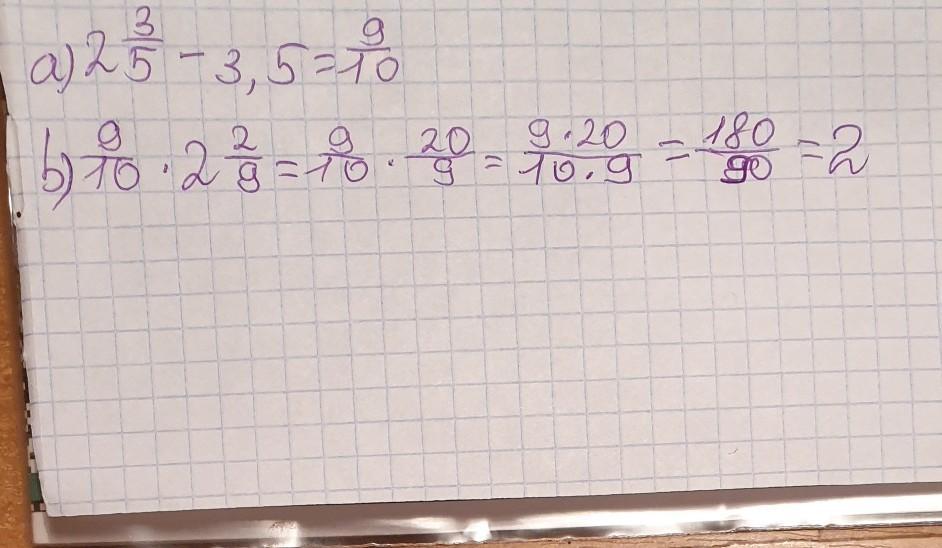 a) 2 3/5 - 3,5 = 9/10
b) 9/10 · 2 2/9 = 9/10 · 20/9 = 9·20/10·9 = 180/90 = 2